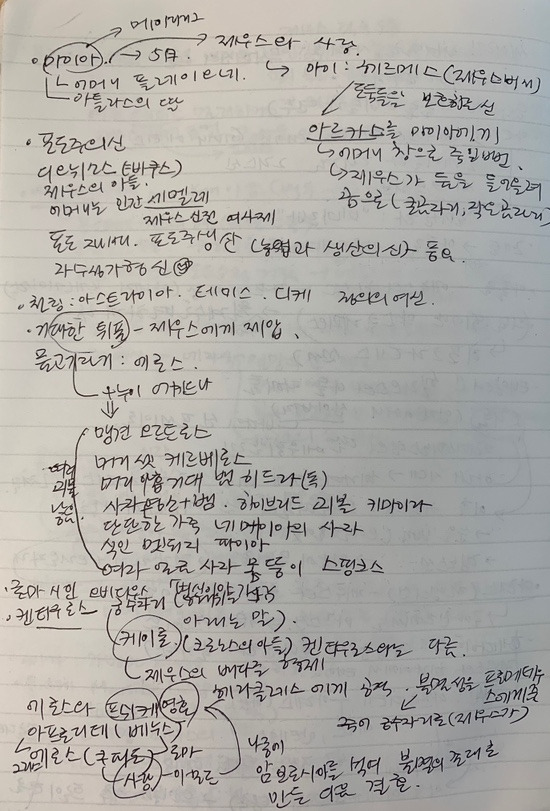 메이데이?
마이아 → 5月 → 제우스와 사랑.
어머니 플레이오네. → 아이 : 헤르메스 (제우스비서)
아틀라스의 딸
도둑들을 보호하는 신
아르카스를 마이아에게
어머니 창으로 죽일뻔.
제우스가 둘을 들어올려
곰으로 (큰곰자리, 작은곰자리)
· 포도주의신
디오니소스 (바쿠스)
제우스의 아들.
어머니는 인간 세멜레
제우스신전 여사제
포도 재배. 포도주생산 (농업과 생산의 신) 풍요.
자수성가형 신
· 천칭 : 아스트라이아. 테미스. 디케 정의의 여신.
· 거대한 튀폰 - 제우스에게 제압.
물고기자리 : 에로스.
+누이 에키드나
맹견 오르토로스
머리 셋 케르베로스
머리 아홉 거대 뱀 히드라(독)
사자+염소+뱀. 하이브리드 괴물 키마이라
단단한 가죽 네메이아의 사자
식인 멧돼지 파이아
여자 얼굴 사자 몸뚱이 스핑크스
여러 괴물 낳음
· 로마 시인 오비디우스 「변신이야기」
· 켄타우로스 궁수자리 아내는 말).
케이론 (크로노스의 아들) 켄타우로스와는 다름.
제우스의 배다른 형제
헤라클레스에게 공격. 불멸성을 프로메테우스에게 줌
죽어 궁수자리로 (제우스가)
에로스와 프쉬케 영혼
아프로디테 (베누스)
에로스 (큐피드) 로마
그리스
사랑 - 아모르
나중에
암브로시아를 먹여 불멸의 존재로
만든 다음 결혼.